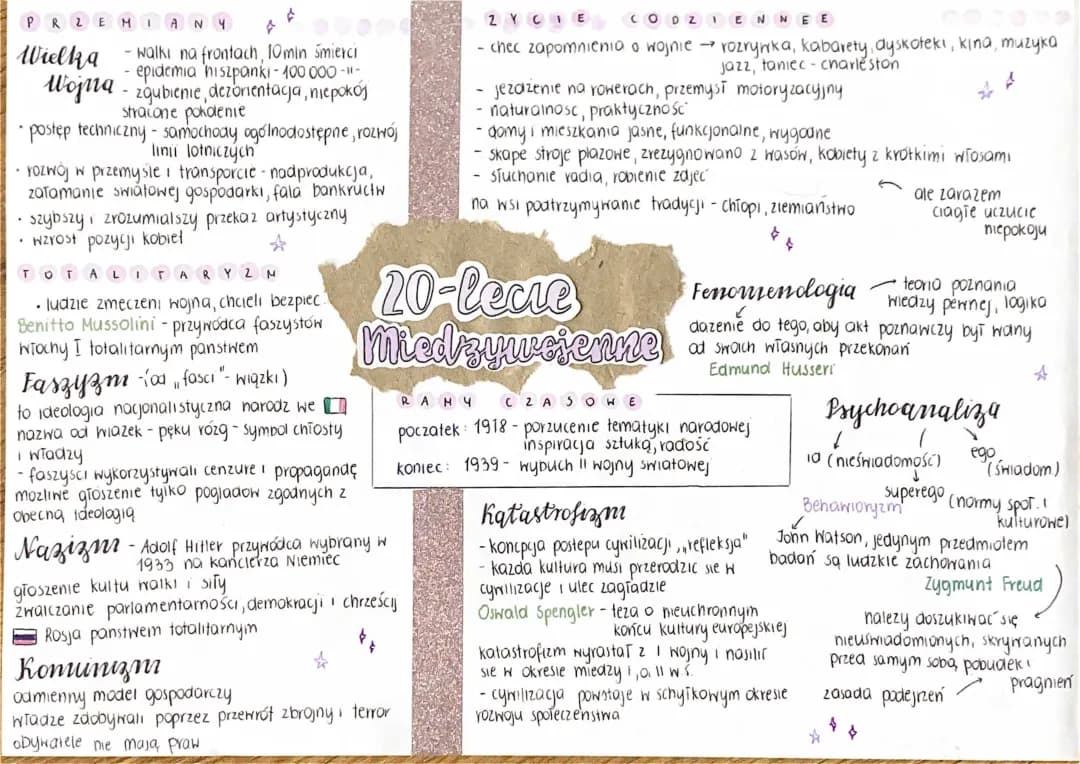 PRZEMIANY
Wielka Wojna
- walki na frontach, 10mln śmierci
- epidemia hiszpanki - 100 000 -II-
- zgubienie, dezorientacja, niepokój
stracone pokolenie
• postęp techniczny - samochody ogólnodostępne, rozwój
linii lotniczych
• rozwój w przemyśle i transporcie - nadprodukcja,
załamanie światowej gospodarki, fala bankructw
• szybszy i zrozumialszy przekaz artystyczny
• wzrost pozycji kobiet
TOTALITARYZM
• ludzie zmęczeni wojną, chcieli bezpiec.
Benitto Mussolini - przywódca faszystów
Włochy I totalitarnym państwem
Faszyzm - (od „fasci" - wiązki)
to ideologia nacjonalistyczna narodz we
nazwa od wiązek - pęku rózg - symbol chłosty
i władzy
- faszyści wykorzystywali cenzurę i propagandę
możliwe głoszenie tylko poglądów zgodnych z
obecną ideologią
Nazizm - Adolf Hitler przywódca wybrany w
1933 na kanclerza Niemiec
głoszenie kultu walki i siły
zwalczanie parlamentarności, demokracji i chrześcij
Rosja państwem totalitarnym
Komunizm
odmienny model gospodarczy
władze zdobywali poprzez przewrót zbrojny i terror
obywatele nie mają praw
20-lecie
Międzywojenne
RAMY CZASOWE
początek: 1918 - porzucenie tematyki narodowej
inspiracja sztuką, radość
koniec: 1939 - wybuch II wojny światowej
ŻYCIE CODZIENNEE
- chęc zapomnienia o wojnie → rozrywka, kabarety, dyskoteki, kina, muzyka
jazz, taniec - charleston
- jeżdżenie na rowerach, przemysł motoryzacyjny
- naturalność, praktyczność
- domy i mieszkania jasne, funkcjonalne, wygodne
- skąpe stroje plażowe, zrezygnowano z wąsów, kobiety z krótkimi włosami
- słuchanie radia, robienie zdjęć
ale zarazem
ciągłe uczucie
niepokoju
na wsi podtrzymywanie tradycji - chłopi, ziemiaństwo
Fenomenologia
teoria poznania
wiedzy pewnej, logika
dążenie do tego, aby akt poznawczy był wolny
od swoich własnych przekonań
Edmund Husserl
Psychoanaliza
id (nieświadomość)
ego
(świadom)
superego (normy społ. i
kulturowe)
Behawioryzm
John Watson, jedynym przedmiotem
badań są ludzkie zachowania
Zygmunt Freud
należy doszukiwać się
nieuświadomionych, skrywanych
przed samym sobą, pobudek i
pragnień
zasada podejrzeń
Katastrofizm
- koncpcja postępu cywilizacji „refleksja"
- każda kultura musi przerodzić się w
cywilizację i ulec zagładzie
Oswald Spengler - teza o nieuchronnym
końcu kultury europejskiej
katastrofizm wyrastał z I wojny i nasilił
się w okresie między I, a II w ś.
- cywilizacja powstaje w schyłkowym okresie
rozwoju społeczeństwa